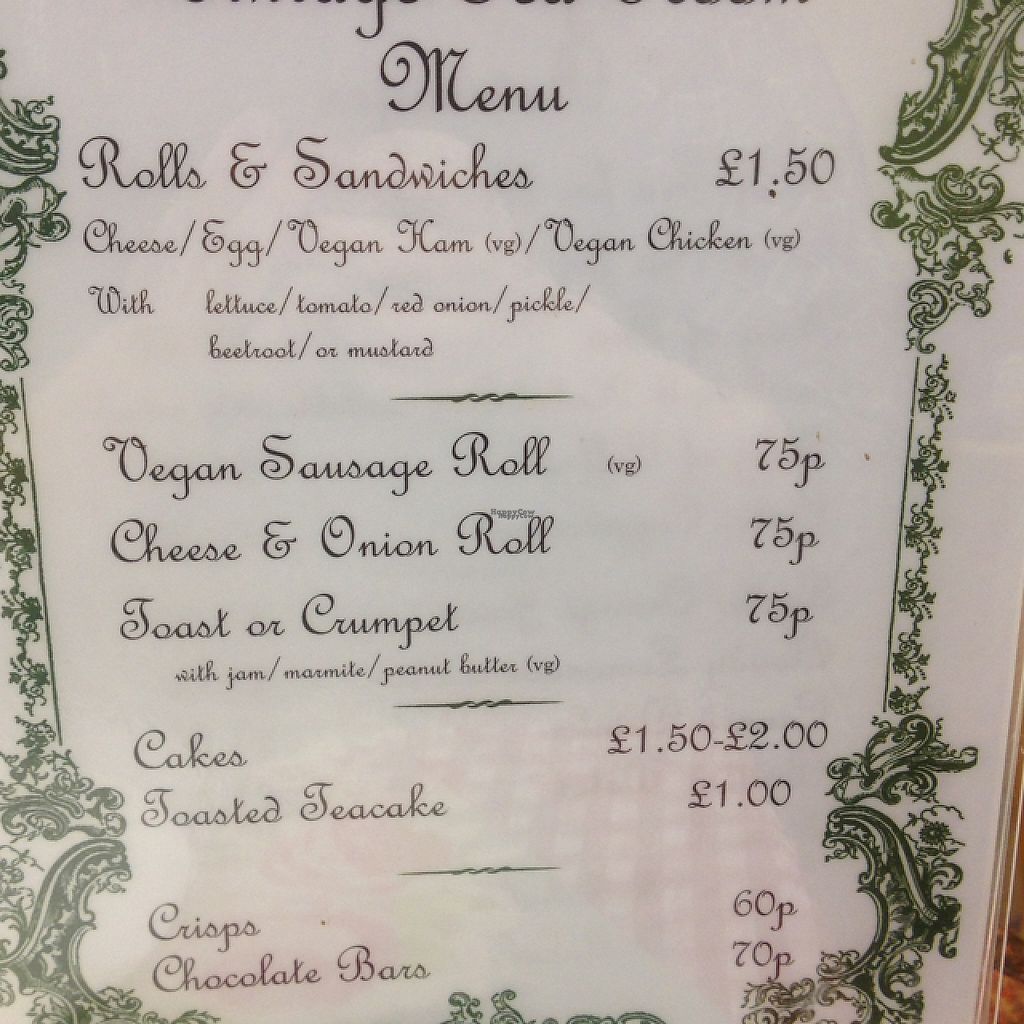 Vintage Tea Room
Menu
Rolls & Sandwiches £1.50
Cheese/Egg/Vegan Ham (vg)/Vegan Chicken (vg)
With lettuce/tomato/red onion/pickle/
beetroot/or mustard
Vegan Sausage Roll (vg) 75p
HappyCow
HappyCow
Cheese & Onion Roll 75p
Toast or Crumpet 75p
with jam/marmite/peanut butter (vg)
Cakes £1.50-£2.00
Toasted Teacake £1.00
Crisps 60p
Chocolate Bars 70p